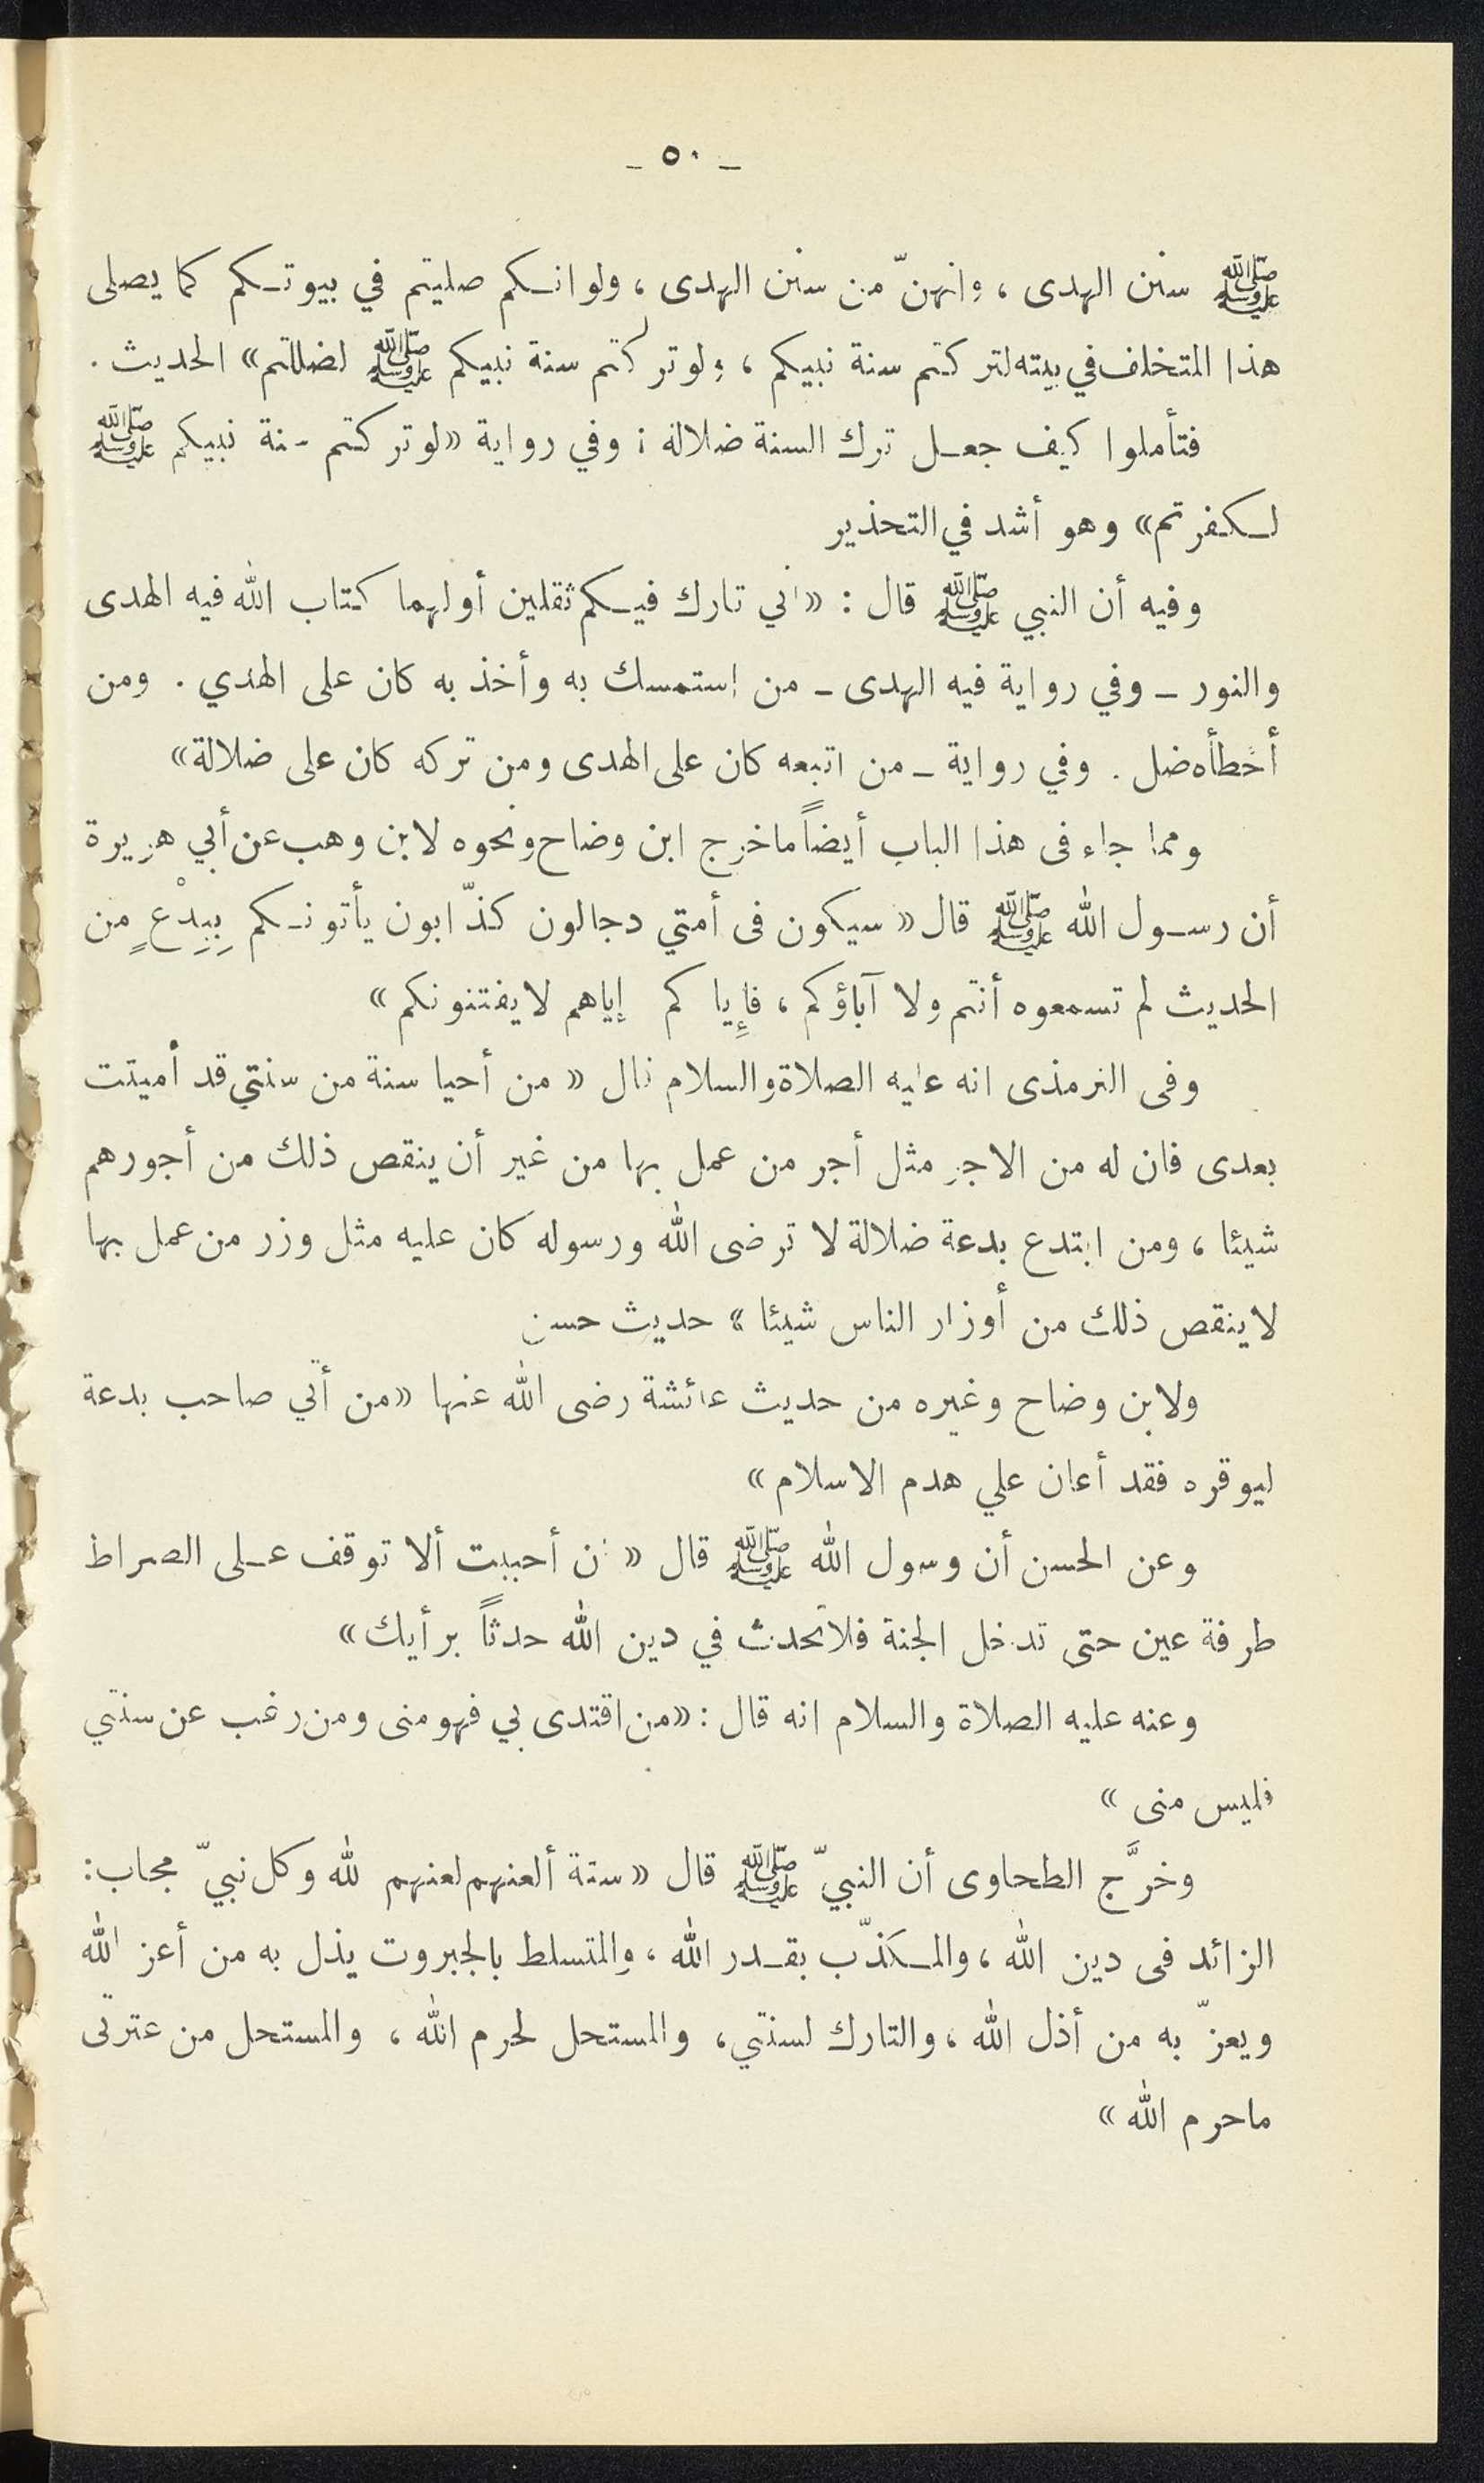 ـ ٥٠ ـ
ﷺ سنن الهدى ، وانهنّ من سنن الهدى ، ولو انكم صليتم في بيوتكم كما يصلى
هذا المتخلف في بيته لتركتم سنة نبيكم ، ولو تركتم سنة نبيكم ﷺ لضللتم» الحديث .
فتأملوا كيف جعل ترك السنة ضلالة ؛ وفي رواية «لو تركتم سنة نبيكم ﷺ
لكفرتم» وهو أشد في التحذير
وفيه أن النبي ﷺ قال : «اني تارك فيكم ثقلين أولهما كتاب الله فيه الهدى
والنور ـ وفي رواية فيه الهدى ـ من استمسك به وأخذ به كان على الهدي . ومن
أخطأه ضل . وفي رواية ـ من اتبعه كان على الهدى ومن تركه كان على ضلالة»
ومما جاء فى هذا الباب أيضاً ما خرج ابن وضاح ونحوه لابن وهب عن أبي هريرة
أن رسول الله ﷺ قال « سيكون فى أمتي دجالون كذّابون يأتونكم بِبِدْعٍ من
الحديث لم تسمعوه أنتم ولا آباؤكم ، فإِياكم إياهم لا يفتنونكم »
وفى الترمذى انه عليه الصلاة والسلام قال « من أحيا سنة من سنتي قد أميتت
بعدى فان له من الاجر مثل أجر من عمل بها من غير أن ينقص ذلك من أجورهم
شيئا ، ومن ابتدع بدعة ضلالة لا ترضى الله ورسوله كان عليه مثل وزر من عمل بها
لا ينقص ذلك من أوزار الناس شيئا » حديث حسن
ولابن وضاح وغيره من حديث عائشة رضى الله عنها «من أتي صاحب بدعة
ليوقره فقد أعان علي هدم الاسلام »
وعن الحسن أن رسول الله ﷺ قال « ان أحببت ألا توقف على الصراط
طرفة عين حتى تدخل الجنة فلا تحدث في دين الله حدثاً برأيك »
وعنه عليه الصلاة والسلام انه قال : «من اقتدى بي فهو منى ومن رغب عن سنتي
فليس منى »
وخرَّج الطحاوى أن النبيّ ﷺ قال « ستة ألعنهم لعنهم الله وكل نبيّ مجاب:
الزائد فى دين الله ، والمكذّب بقدر الله ، والمتسلط بالجبروت يذل به من أعز الله
ويعزّ به من أذل الله ، والتارك لسنتي، والمستحل لحرم الله ، والمستحل من عترتى
ما حرم الله »